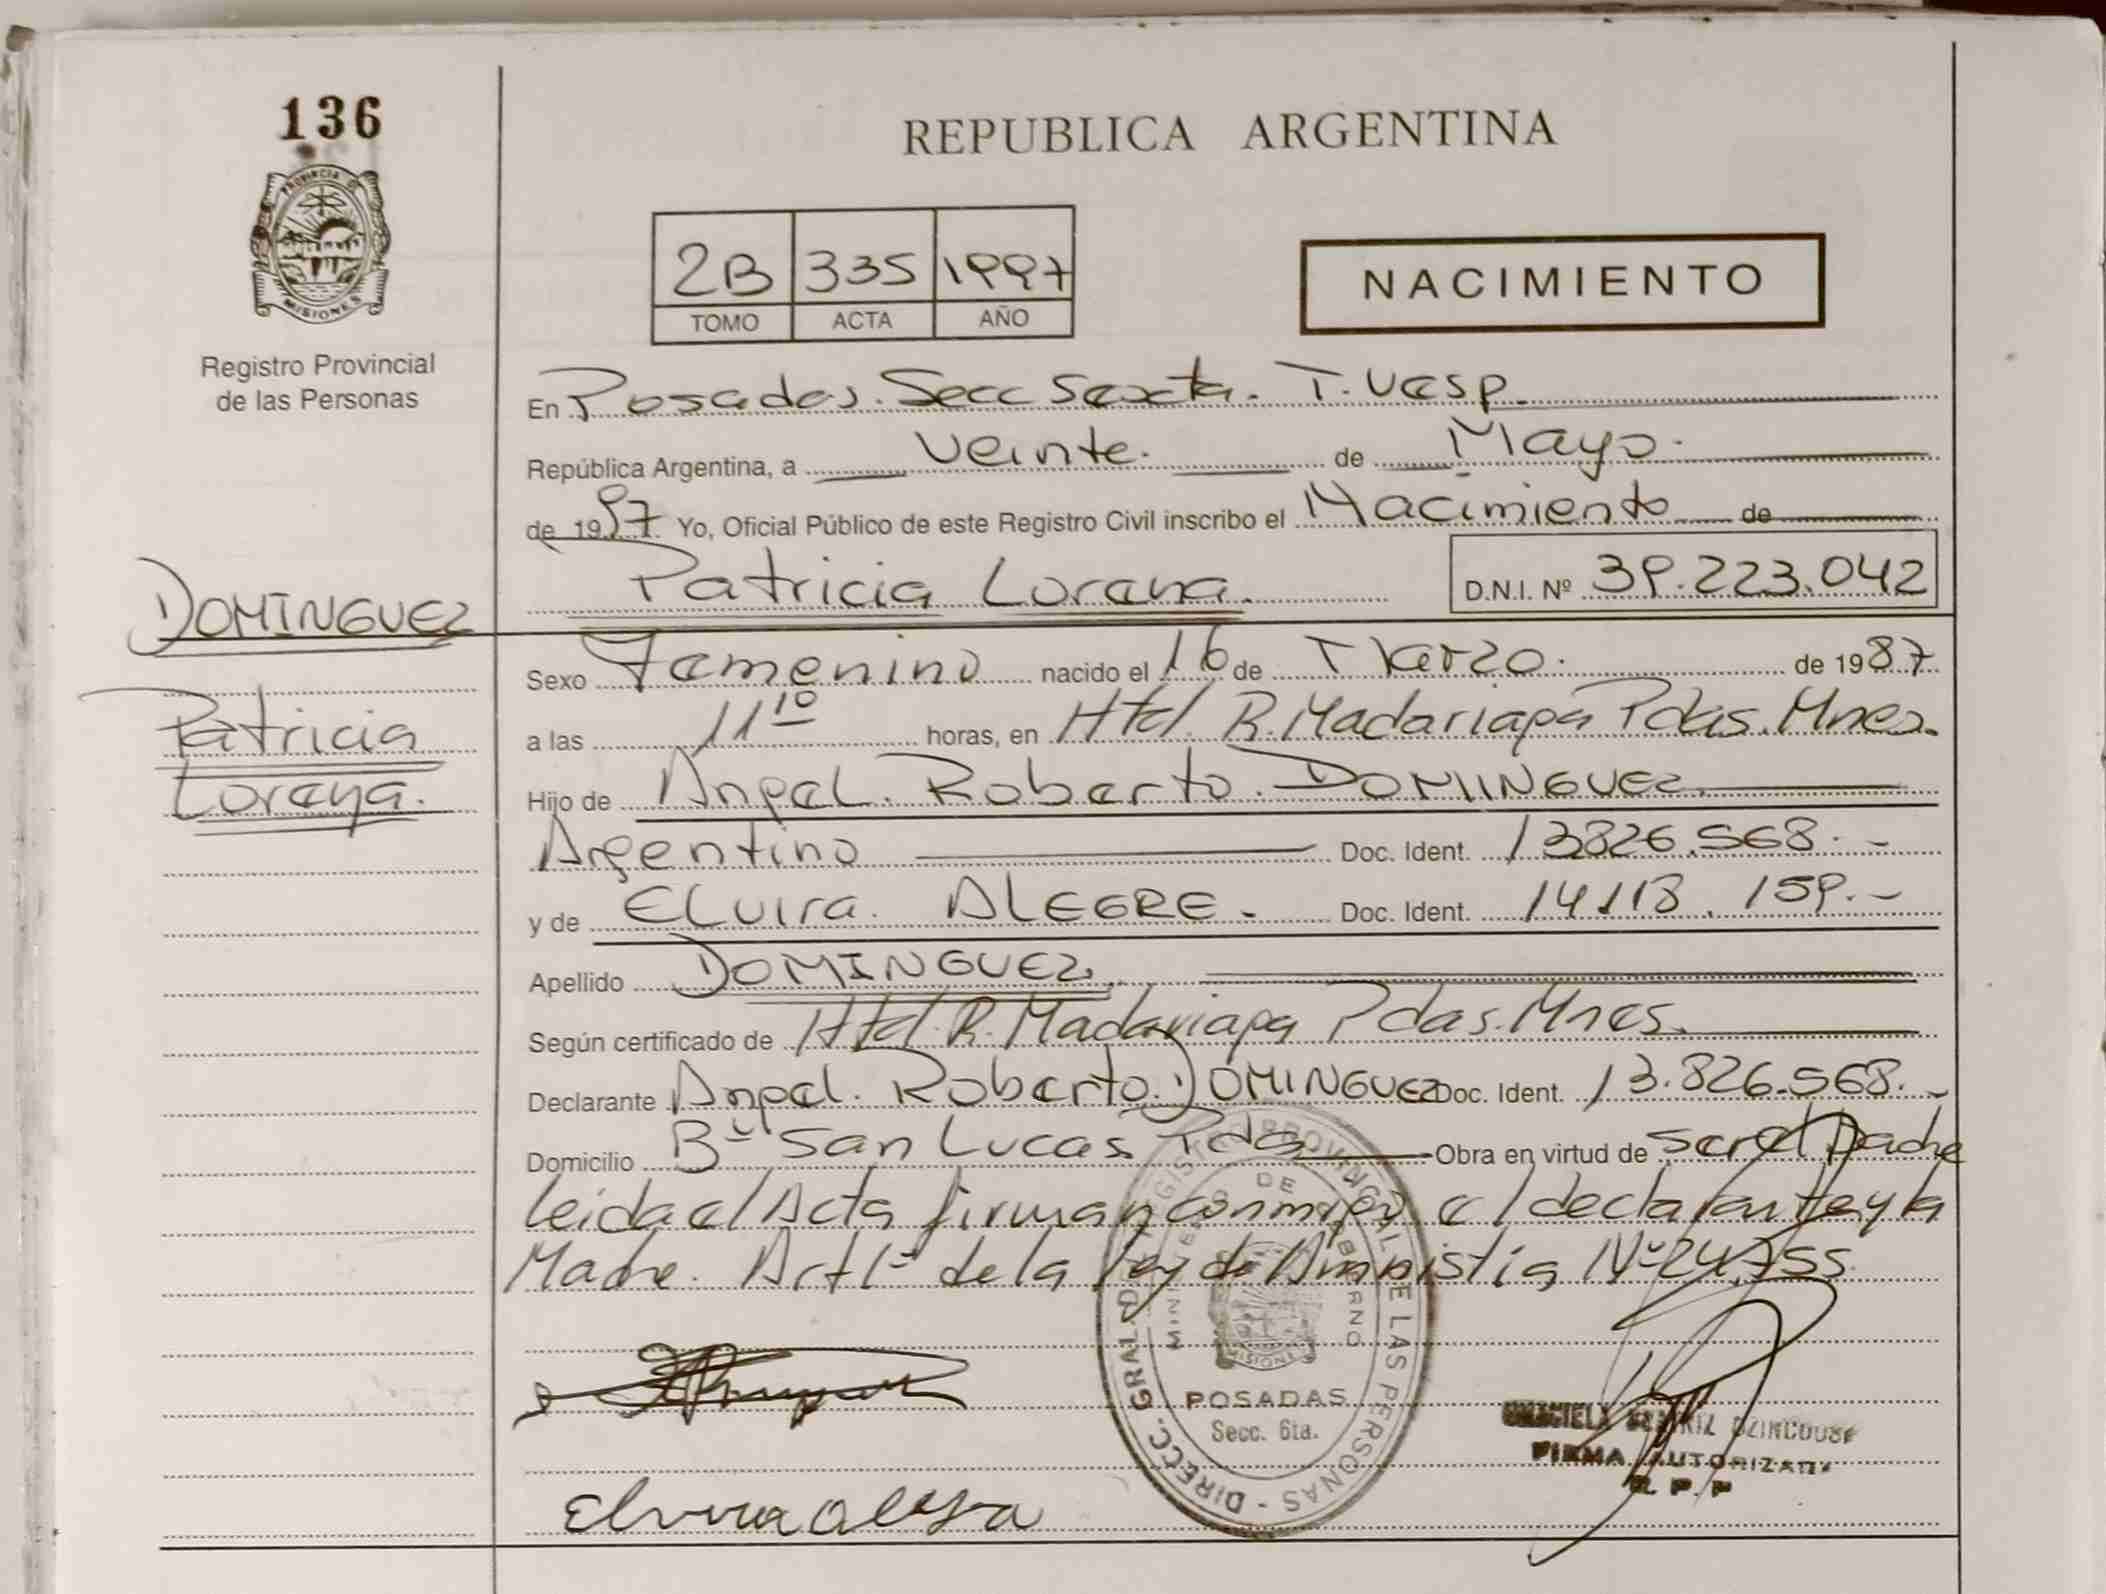 136
PROVINCIA DE
MISIONES
Registro Provincial
de las Personas
REPUBLICA ARGENTINA
2B 335 1997
TOMO ACTA AÑO
NACIMIENTO
En Posadas. Secc Sexta. T. Vesp.
República Argentina, a veinte. de Mayo.
de 1997 Yo, Oficial Público de este Registro Civil inscribo el Nacimiento de
Patricia Lorena. D.N.I. Nº 39.223.042
DOMINGUEZ
Patricia
Lorena.
Sexo Femenino nacido el 16 de Marzo. de 1987
a las 11 10 horas, en Htal. R. Madariaga Pdas. Mnes.
Hijo de Angel. Roberto. DOMINGUEZ.
Argentino Doc. Ident. 13826.568.-
y de ELvira. ALEGRE. Doc. Ident. 14118.159.-
Apellido DOMINGUEZ.
Según certificado de Htal. R. Madariaga Pdas. Mnes.
Declarante Angel. Roberto. DOMINGUEZ Doc. Ident. 13.826.568.-
Domicilio Bº San Lucas. Pdas Obra en virtud de ser el Padre
leida el Acta firman conmigo el declarante y la
Madre. Art 1º de la Ley de Amnistia Nº 24.755
DIRECC. GRAL. DE REGISTRO PROVINCIAL DE LAS PERSONAS -
MINISTERIO DE GOBIERNO
MISIONES
POSADAS
Secc. 6ta.
BEATRIZ
FIRMA AUTORIZADA
R. P. P
Elvira alegre